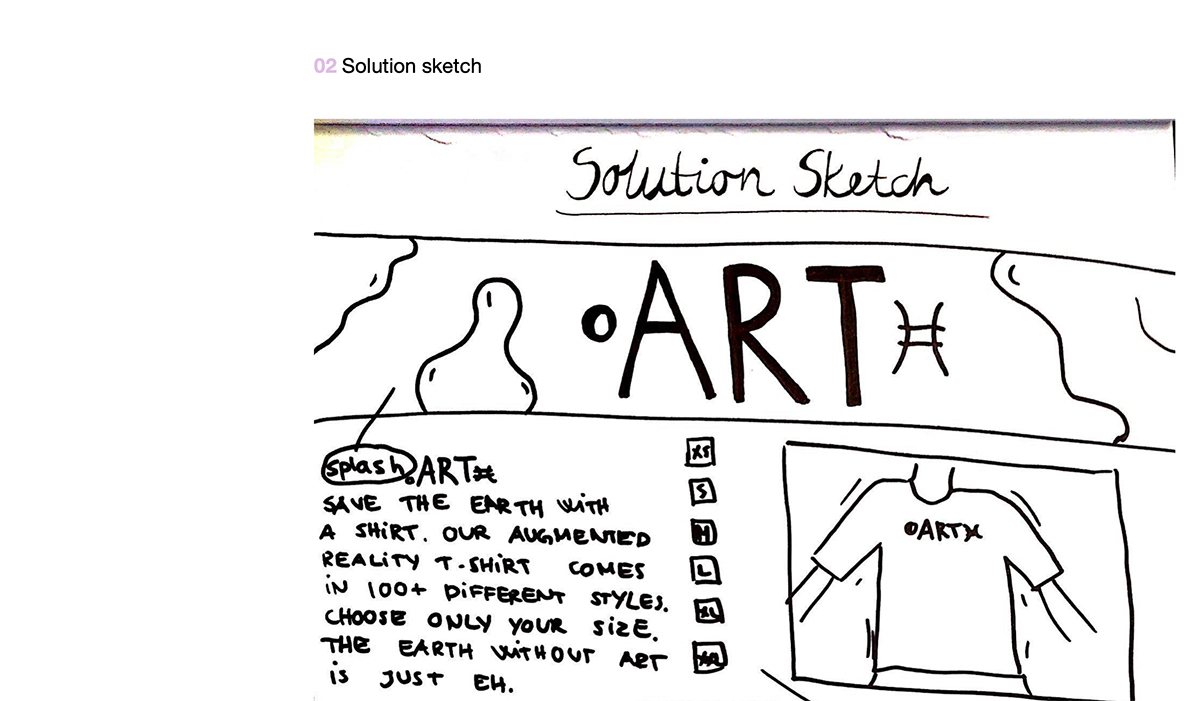 02 Solution sketch
Solution Sketch
.ART♓
splash.ART♓
SAVE THE EARTH WITH
A SHIRT. OUR AUGMENTED
REALITY T-SHIRT COMES
IN 100+ DIFFERENT STYLES.
CHOOSE ONLY YOUR SIZE.
THE EARTH WITHOUT ART
is JUST EH.
XS
S
M
L
XL
.ART♓